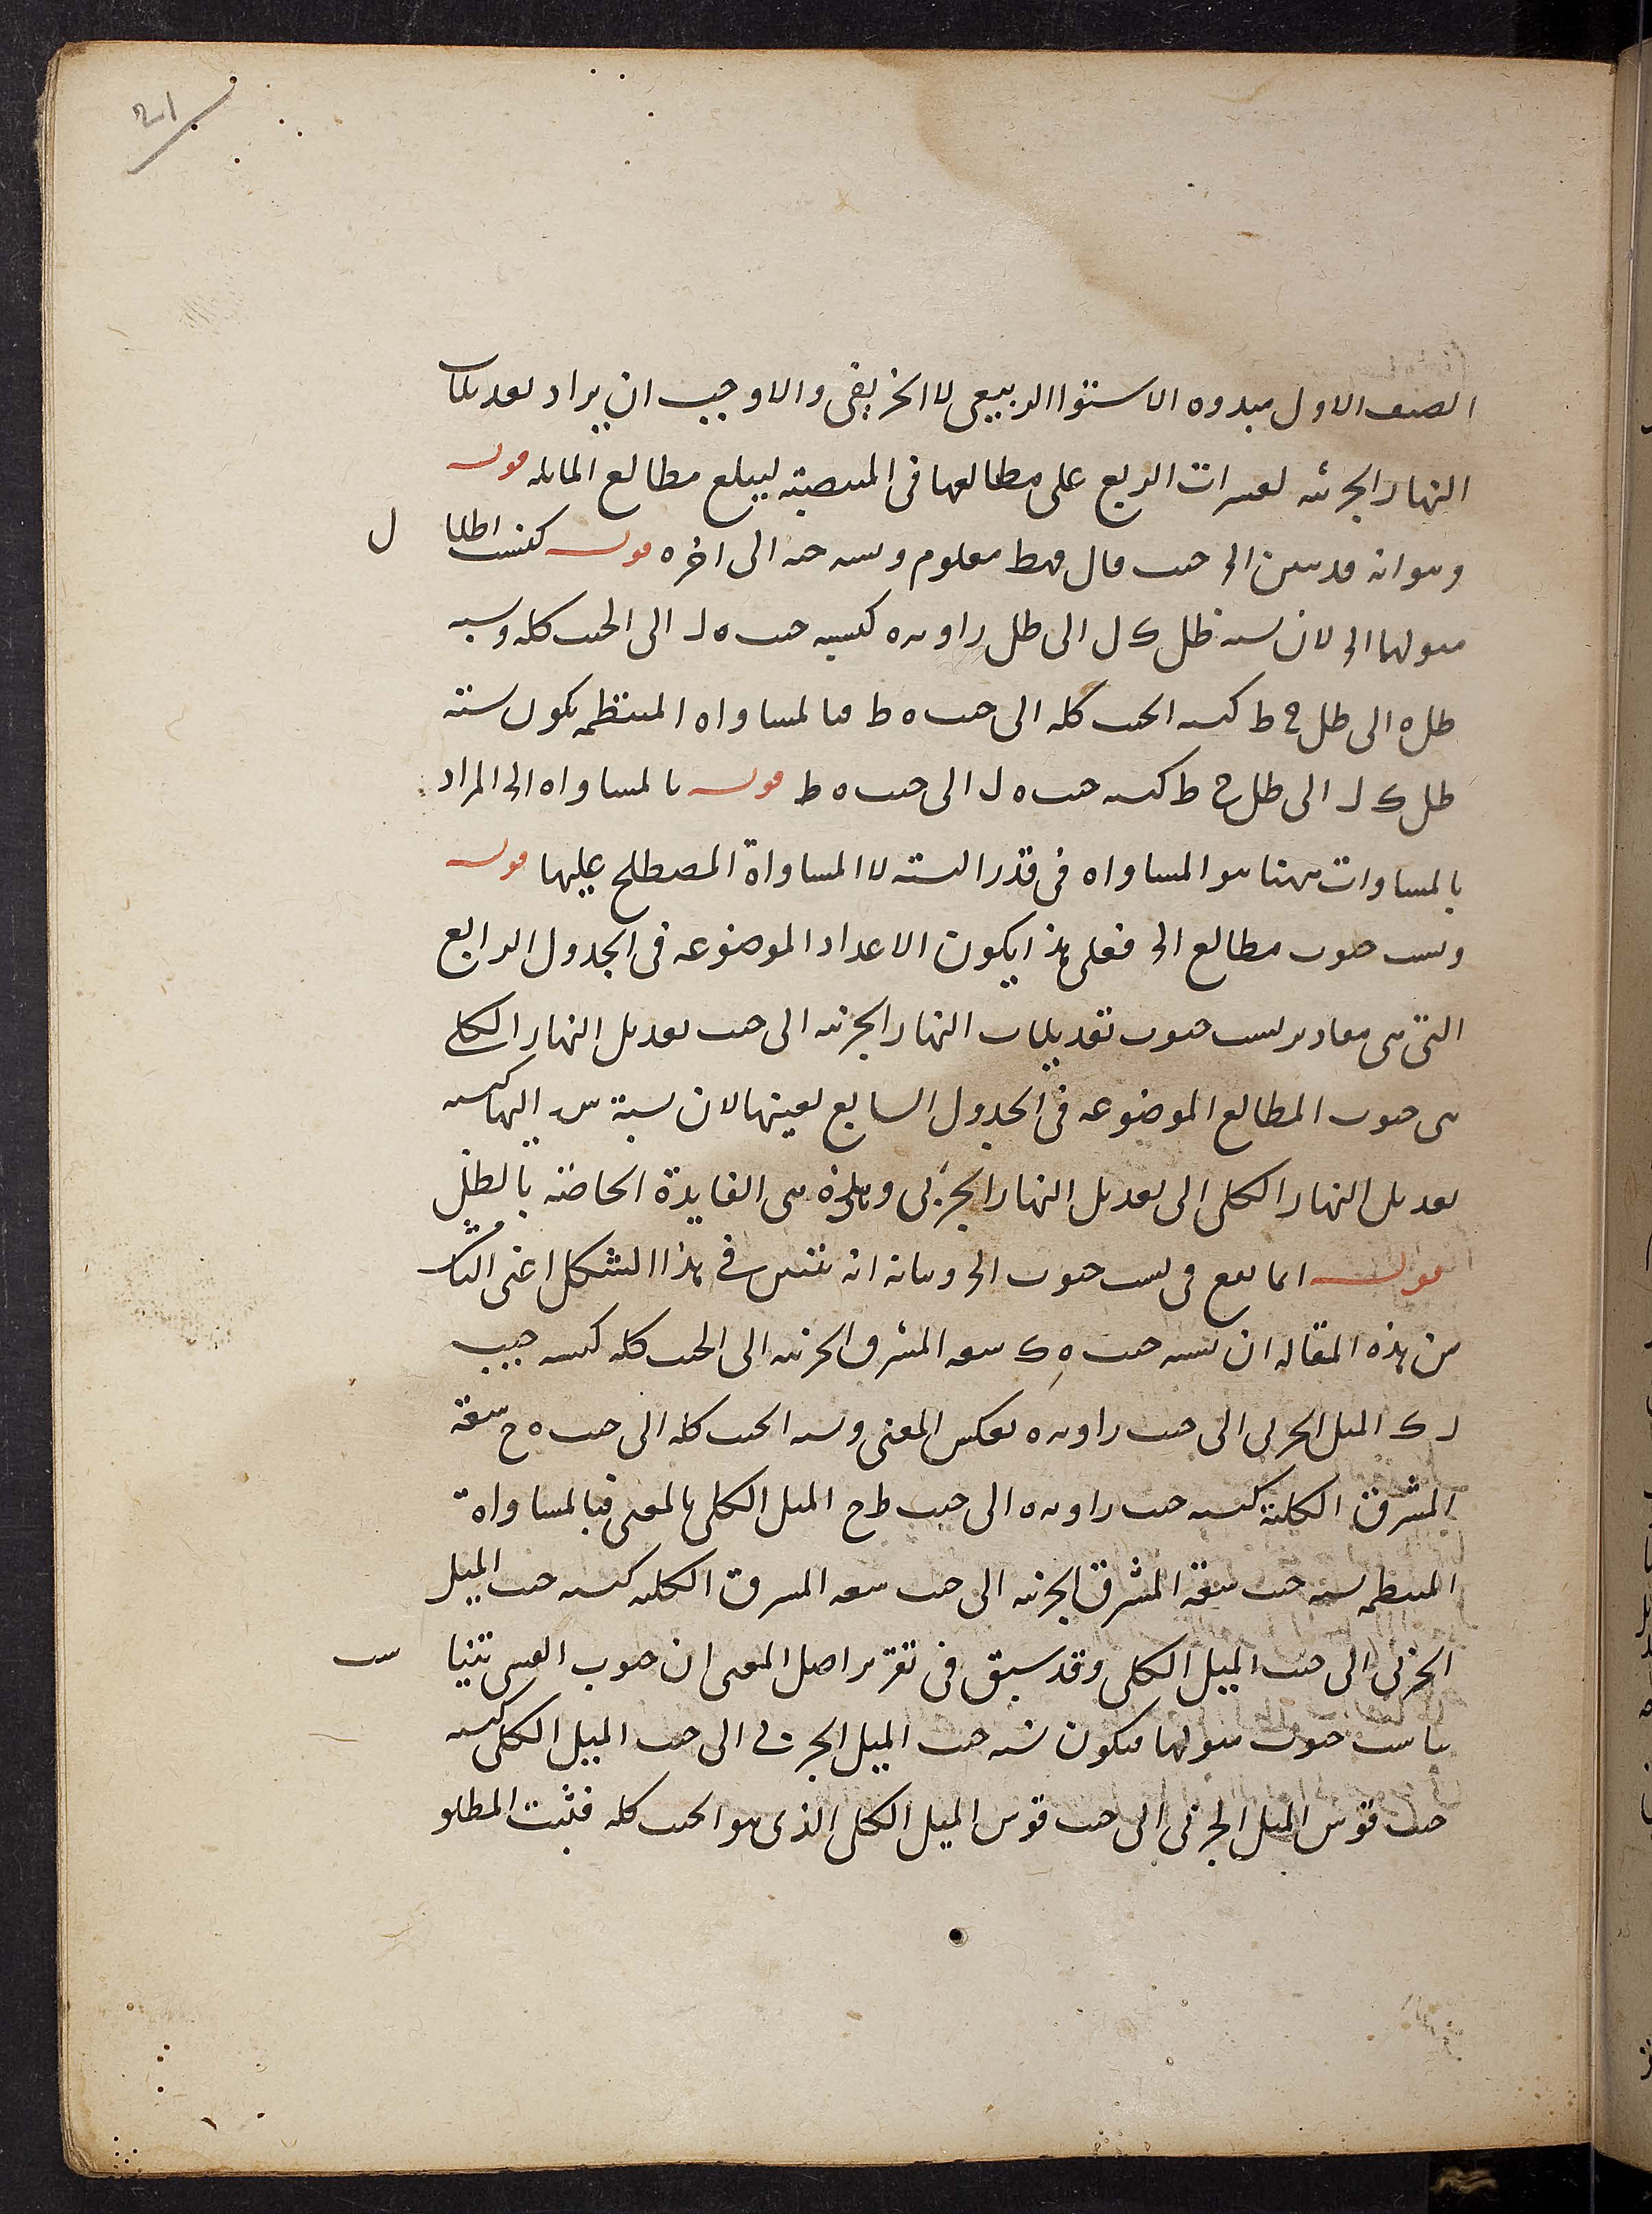 21
الصنف الاول مبدوه الاستوا الربيعى لا الخريفى والاوجب ان يراد تعديلات
النهار الجزئيه لعشرات الربع على مطالعها فى المنتصبة ليبلغ مطالع المايله قوله
وهو انه قد تبين الى حيث قال فهط معلوم ونسبه جيب الى اخره قوله كنسبت اظلا ل
ميولهما الى لان نسبه ظل ك ل الى ظل زاويه ه كنسبه جيب ه ل الى الجيب كله ونسبه
ظل ه الى ظل ح ط كنسبه الجيب كله الى جيب ه ط فبالمساواه المنتظمه يكون نسبة
ظل ك ل الى ظل ح ط كنسبه جيب ه ل الى جيب ه ط قوله بالمساواه الى المراد
بالمساوات ههنا هو المساواه فى قدر النسبه لا المساواة المصطلح عليها قوله
ونسب جيوب مطالع الى فعلى هذا يكون الاعداد الموضوعه فى الجدول الرابع
التى هى مقادير نسب جيوب تعديلات النهار الجزئيه الى جيب تعديل النهار الكلى
هى جيوب المطالع الموضوعه فى الجدول السابع بعينها لان نسبة اليها كنسبه
تعديل النهار الكلى الى تعديل النهار الجزئى وهذه هى الفايدة الخاصة بالظل
قوله انما يقع فى نسب جيوب الى وبيانه انه تبين فى هذا الشكل اعنى
من هذه المقاله ان نسبه جيب ه ك سعه المشرق الجزئيه الى الجيب كله كنسبه جيب
ل ك الميل الجزئى الى جيب زاويه ه بعكس المغنى ونسبه الجيب كله الى جيب ه ح سعة
المشرق الكلية كنسبه جيب زاويه ه الى جيب ط ح الميل الكلى بالمغنى فبالمساواة
المنتظمه نسبه جيب سعة المشرق الجزئيه الى جيب سعه المشرق الكليه كنسبه جيب الميل
الجزئى الى جيب الميل الكلى وقد سبق فى تقرير اصل المغنى ان جيوب القسى تتنا سب
بتناسب جيوب ميولها فيكون نسبه جيب الميل الجزئى الى جيب الميل الكلى كنسبه
جيب قوس الميل الجزئى الى جيب قوس الميل الكلى الذى هو الجيب كله فثبت المطلو